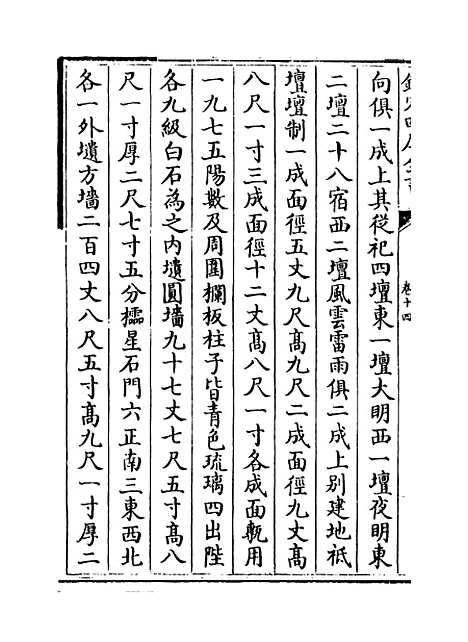 欽定四庫全書
卷十四
向俱一成上其從祀四壇東一壇大明西一壇夜明東
二壇二十八宿西二壇風雲雷雨俱二成上别建地祇
壇壇制一成面徑五丈九尺髙九尺二成面徑九丈髙
八尺一寸三成面徑十二丈髙八尺一寸各成面甎用
一九七五陽數及周圍欄板柱子皆青色琉璃四出陛
各九級白石為之内壝圓墻九十七丈七尺五寸髙八
尺一寸厚二尺七寸五分櫺星石門六正南三東西北
各一外壝方墻二百四丈八尺五寸髙九尺一寸厚二